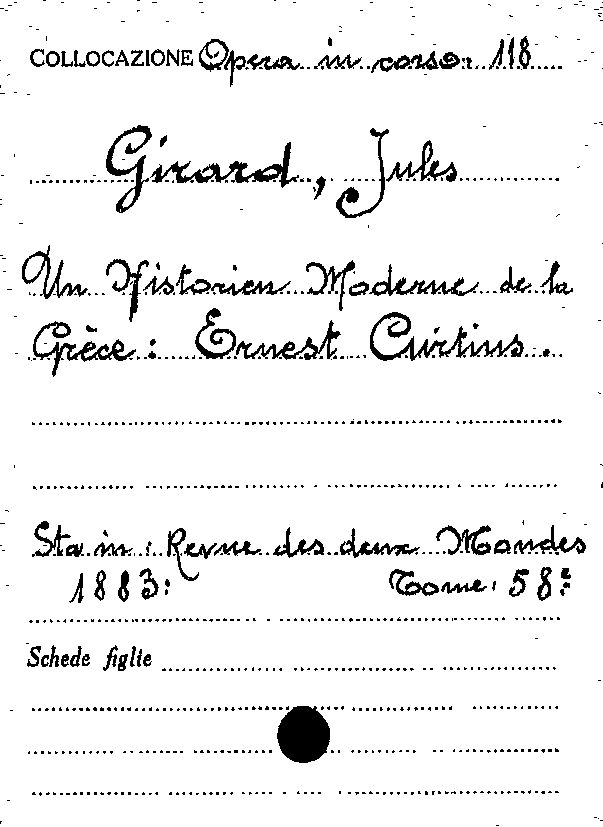 COLLOCAZIONE Opera in corso: 118
Girard, Jules
Un Historien Moderne de la
Grèce: Ernest Curtius.
Sta in: Revue des deux Mondes
1883: Tome: 58e
Schede figlie